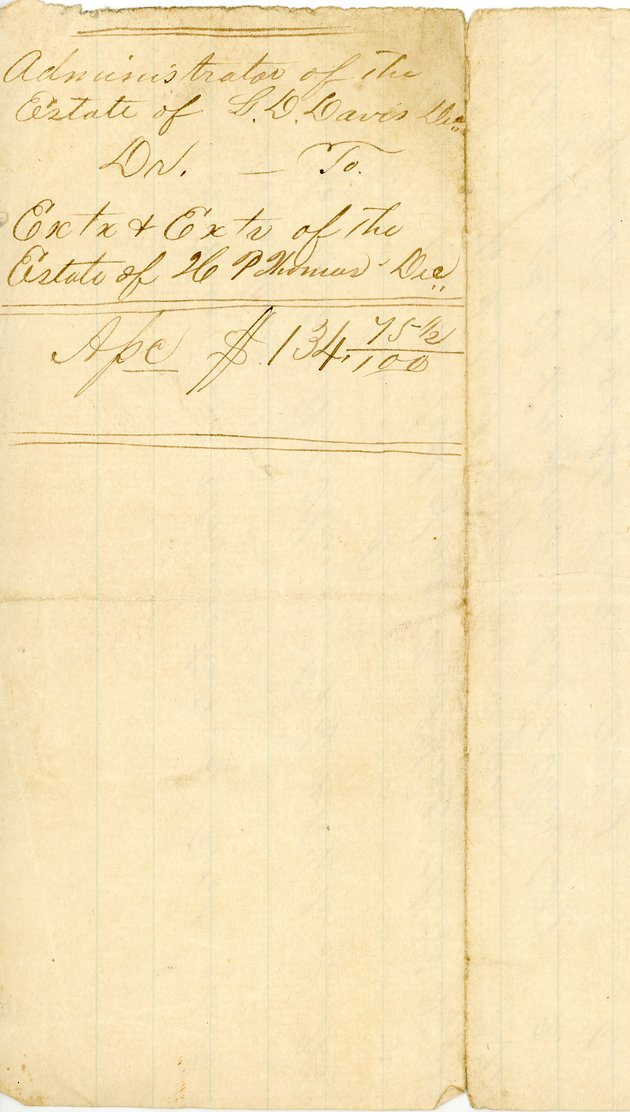 Administrator of the
Estate of G. D. Davis Dec
Dr. — To.
Extx & Extr of the
Estate of H P Thomas Dec
A/c $ 134, 75 1/2 / 100